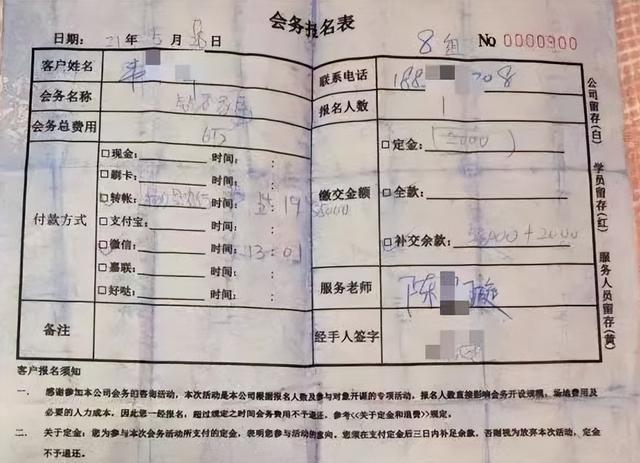 会务报名表
日期: 21 年 5 月 日
8 组 No 0000900
客户姓名
联系电话 188 208
会务名称
报名人数 1
会务总费用
付款方式
□现金: 时间: :
□刷卡 时间: :
□转帐: 时间: 19
□支付宝: 时间: :
□微信: 时间: 13:01
□嘉联: 时间: :
□好哒: 时间: :
缴交金额
58000
□定金: 5000
□全款:
□补交余款: +2000
服务老师 陈 璇
备注
经手人签字
公司留存(白)
学员留存(红)
服务人员留存(黄)
客户报名须知
一. 感谢参加本公司会务的咨询活动，本次活动是本公司根据报名人数及参与对象开课的专项活动，报名人数直接影响会务开设规模，场地费用及
必要的人力成本，因此您一经报名，超过规定之时间会务费用不予退还，参考<<关于定金和退费>>规定。
二. 关于定金：您为参与本次会务活动所支付的定金，表明您参与活动的意向，您须在支付定金后三日内补足余款，否则视为放弃本次活动，定金
不予退还。